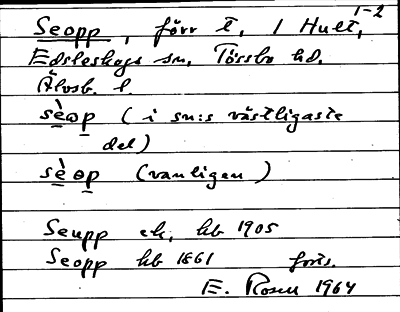 1-2
Seopp, förr t, / Hult,
Edsleskogs sn, Tössbo hd.
Älvsb. l.
sèop (i sn:s västligaste
del)
sèɵp (vanligen)
Seupp ek, hb 1905
Seopp hb 1861 forts.
E. Rosen 1964